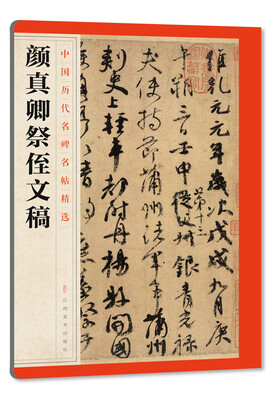 颜真卿祭侄文稿
中国历代名碑名帖精选
江西美术出版社
維乾元元年歲次戊戌九月庚
午朔三日壬申第十三從父叔銀青光祿
夫使持節蒲州諸軍事蒲州
刺史上輕車都尉丹楊縣開國